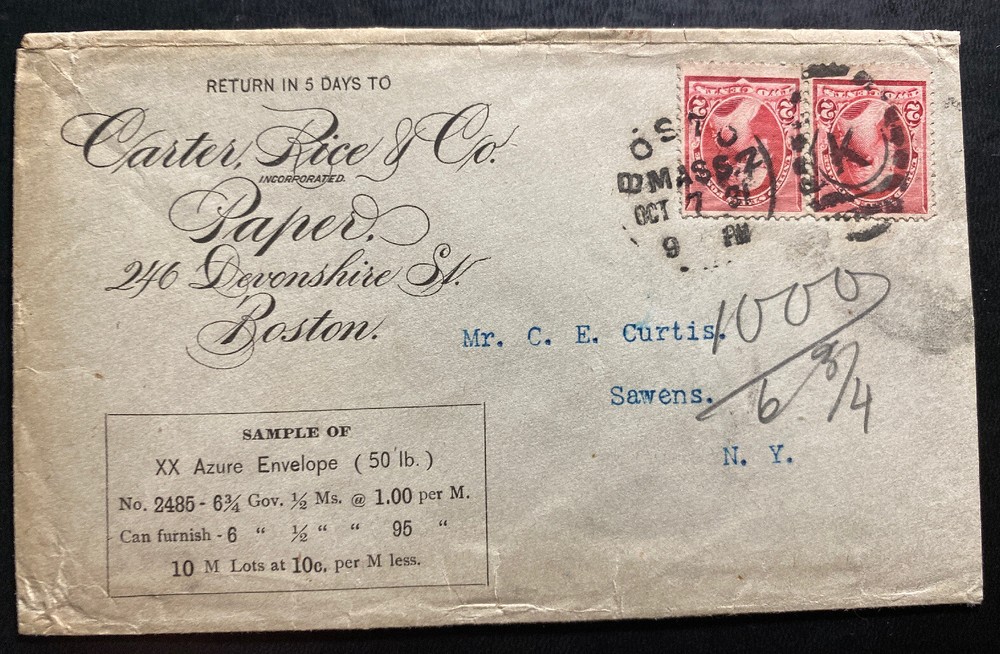 RETURN IN 5 DAYS TO
Carter, Rice & Co.
INCORPORATED.
Paper,
246 Devonshire St.
Boston.
BOSTO
MASS.
OCT 7 91
9 PM
K
2 2
2 2
Mr. C. E. Curtis.
Sawens.
N. Y.
1000
6 3/4
SAMPLE OF
XX Azure Envelope (50 lb.)
No. 2485 - 6¾ Gov. ½ Ms. @ 1.00 per M.
Can furnish - 6 " ½ " " 95 "
10 M Lots at 10c. per M less.